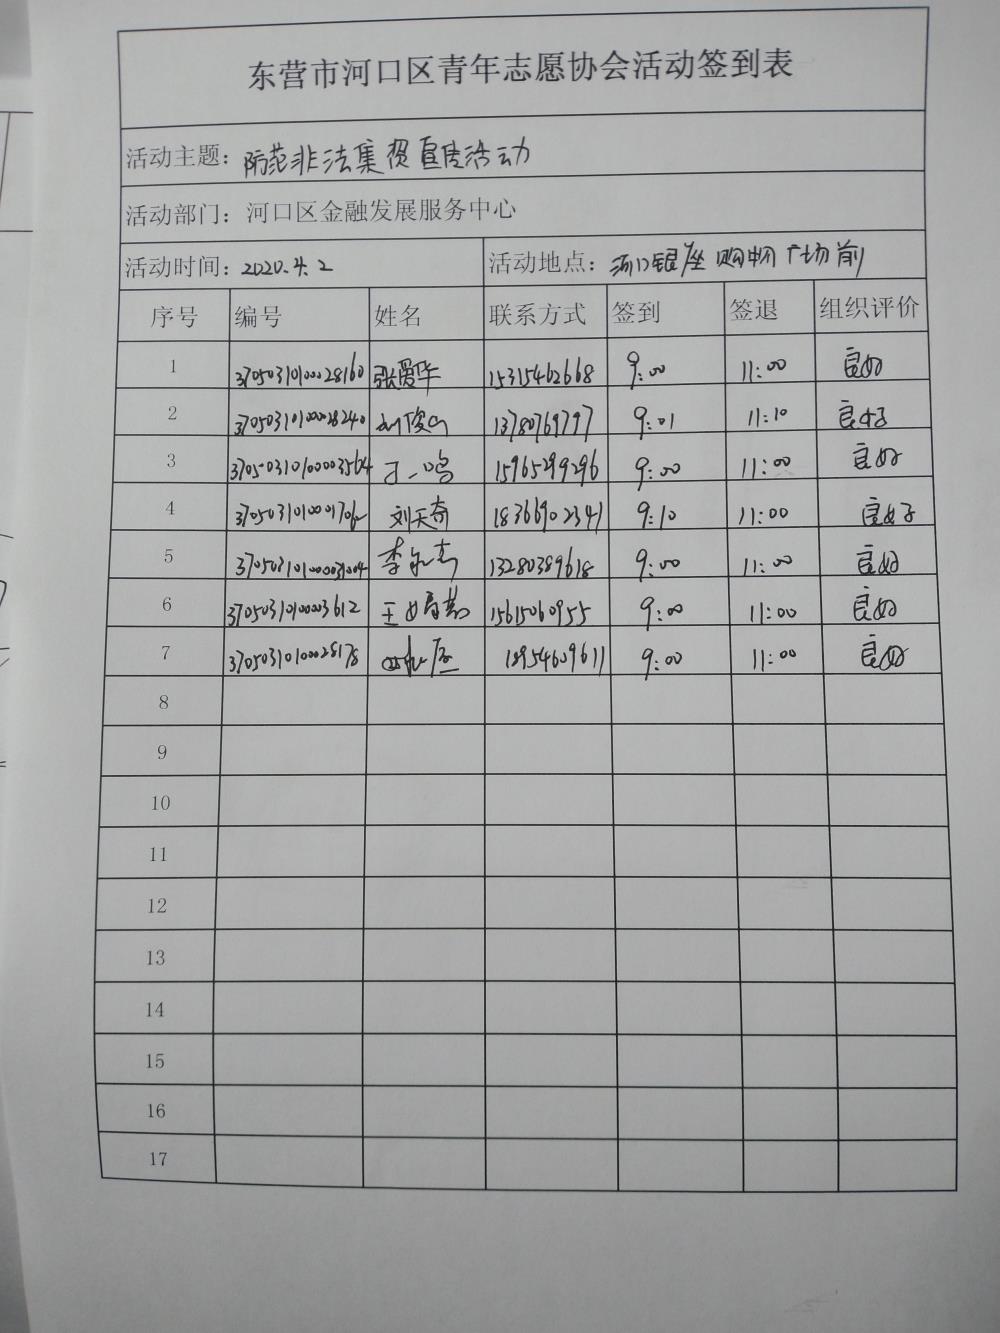 东营市河口区青年志愿协会活动签到表
活动主题：防范非法集资宣传活动
活动部门：河口区金融发展服务中心
活动时间：2020.4.2 活动地点：河口银座购物广场前
序号 编号 姓名 联系方式 签到 签退 组织评价
1 3705031010028160 张爱华 15315462668 9:00 11:00 良好
2 13780769797 9:01 11:10 良好
3 丁一鸣 15965299296 9:00 11:00 良好
4 刘天奇 18366902341 9:10 11:00 良好
5 李 13280389618 9:00 11:00 良好
6 37050310100003612 王 15615060955 9:00 11:00 良好
7 3705031010028178 18954609611 9:00 11:00 良好
8
9
10
11
12
13
14
15
16
17